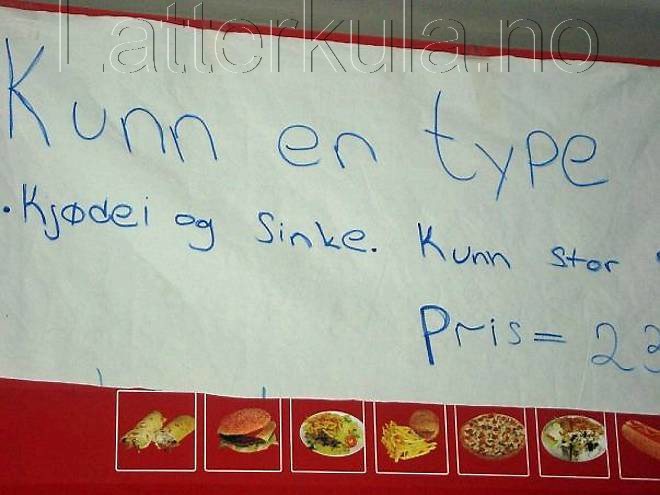 Latterkula.no
Kunn en type
. Kjødei og Sinke. Kunn stor
Pris = 23